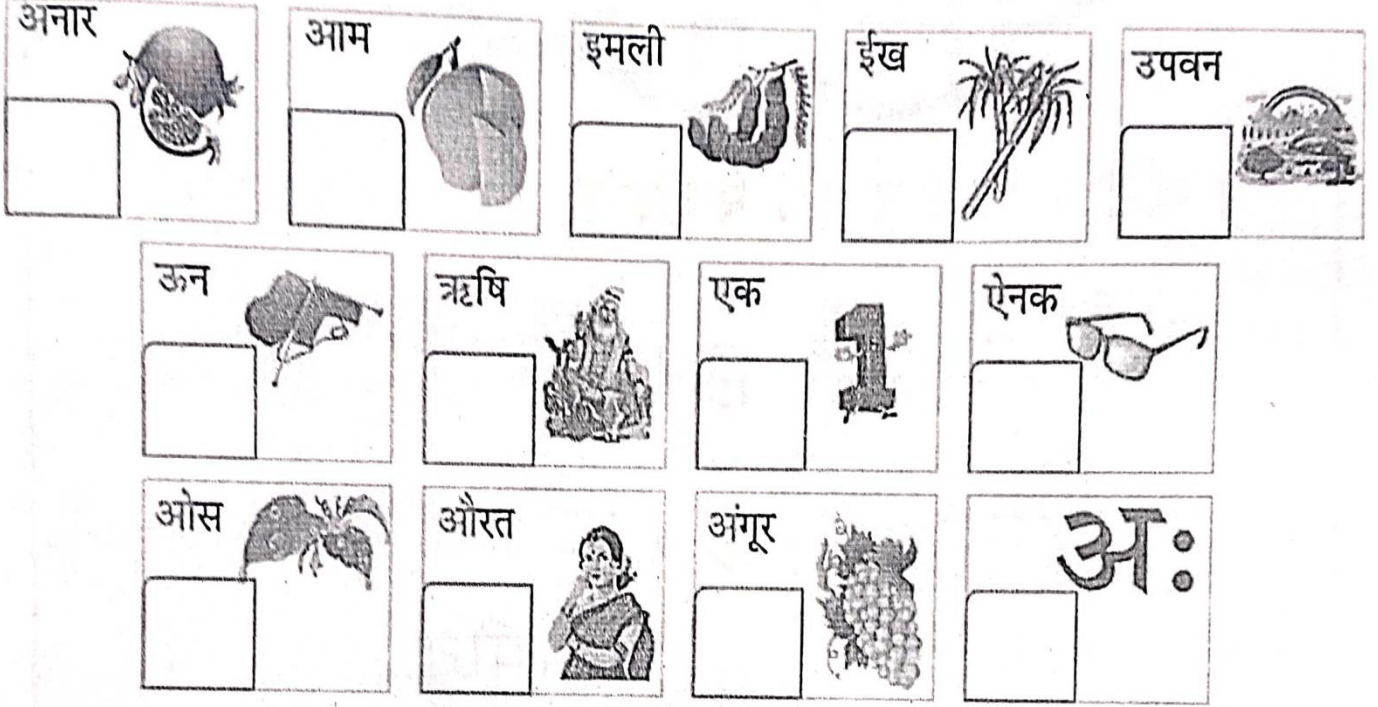 अनार आम इमली ईख उपवन
ऊन ऋषि एक 1 ऐनक
ओस औरत अंगूर अः